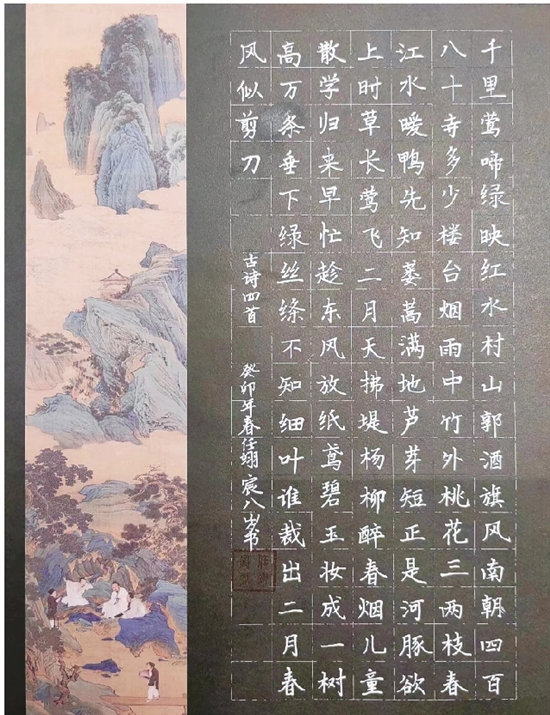 千里莺啼绿映红水村山郭酒旗风南朝四百
八十寺多少楼台烟雨中竹外桃花三两枝春
江水暖鸭先知蒌蒿满地芦芽短正是河豚欲
上时草长莺飞二月天拂堤杨柳醉春烟儿童
散学归来早忙趁东风放纸鸢碧玉妆成一树
高万条垂下绿丝绦不知细叶谁裁出二月春
风似剪刀 古诗四首 癸卯年春任翊宸八岁书